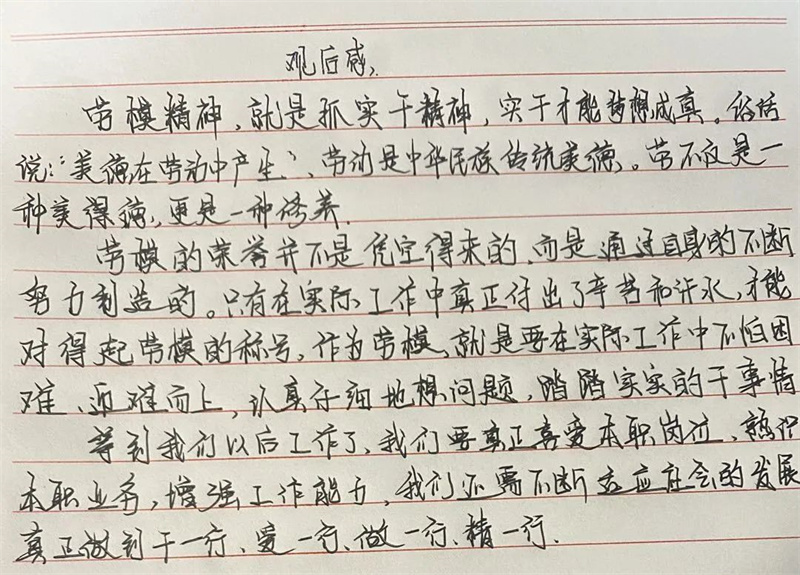 观后感.
劳模精神,就是抓实干精神,实干才能梦想成真。俗话
说:“美德在劳动中产生”、劳动是中华民族传统美德。劳不仅是一
种美得德,更是一种修养.
劳模的荣誉并不是凭空得来的,而是通过自身的不断
努力创造的。只有在实际工作中真正付出了辛苦和汗水,才能
对得起劳模的称号,作为劳模,就是要在实际工作中不怕困
难、迎难而上,认真仔细地想问题,踏踏实实的干事情
等到我们以后工作了,我们要真正喜爱本职岗位、熟识
本职业务,增强工作能力,我们还需不断适应社会的发展
真正做到干一行、爱一行、做一行、精一行.